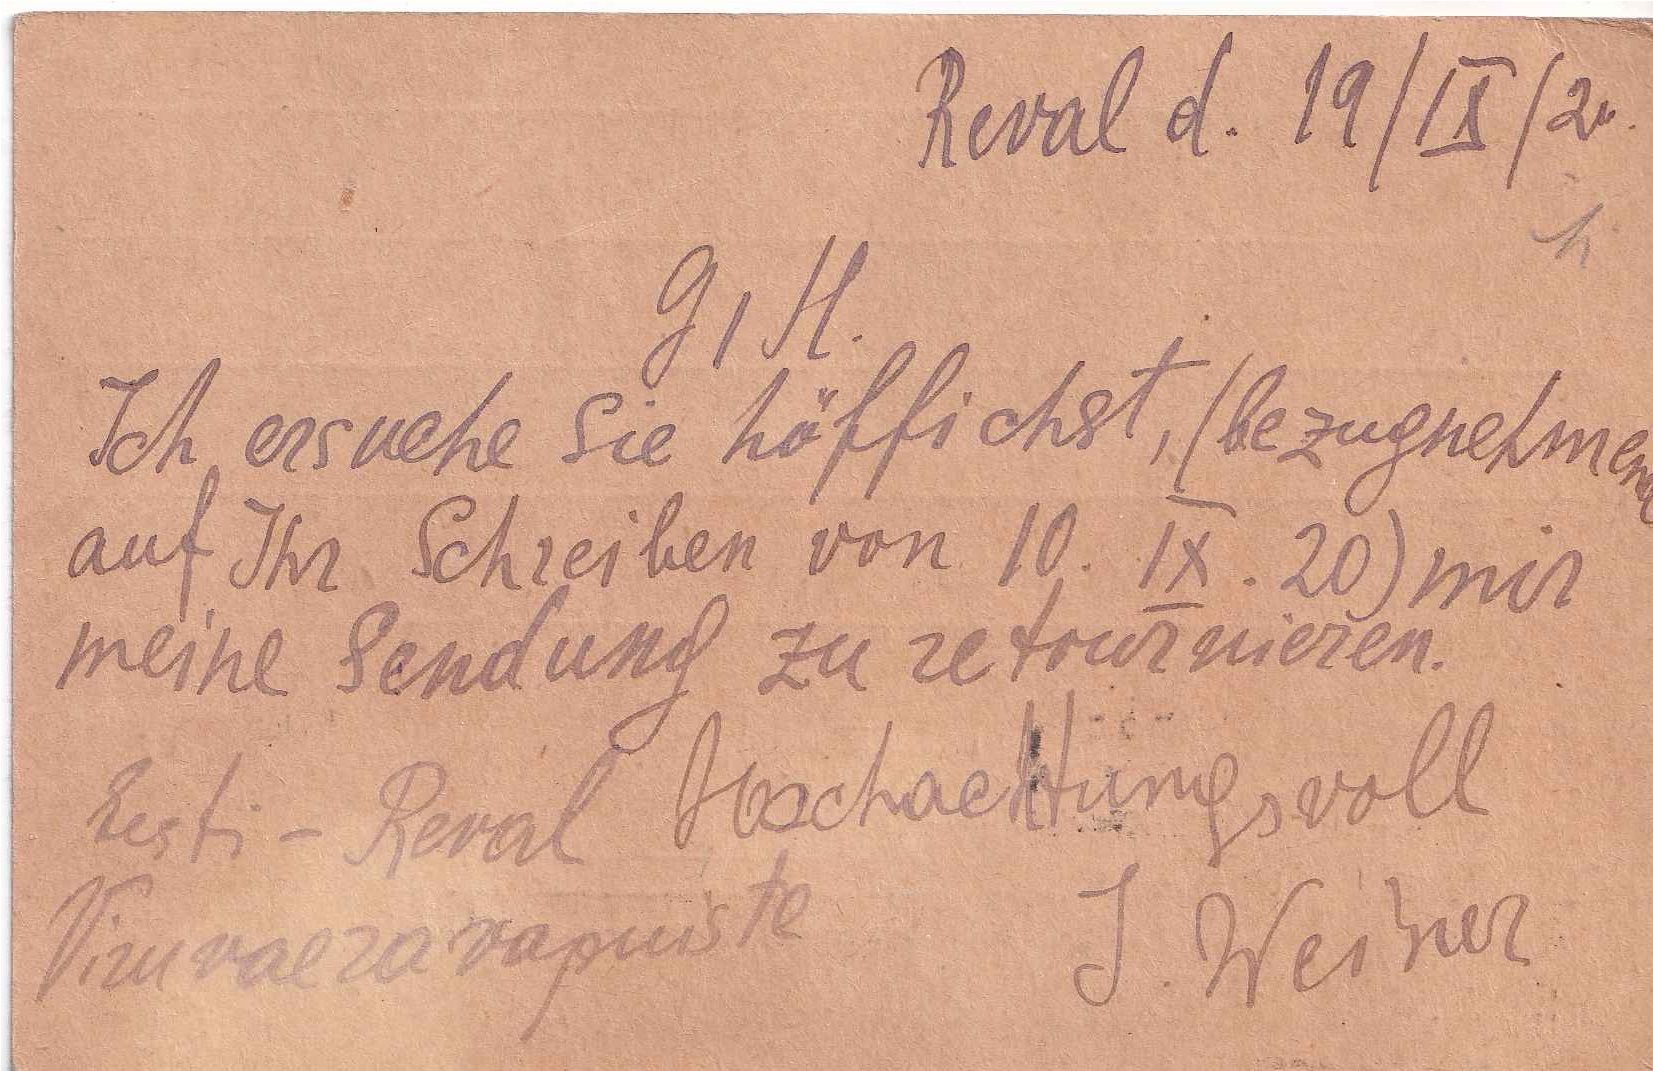 Reval d. 19/IX/20.
G, H.
Ich ersuche Sie höffichst, (bezugnehmend
auf Ihr Schreiben von 10. IX. 20) mir
meine Sendung zu retournieren.
Hochachtungsvoll
Eesti - Reval
J. Weiner